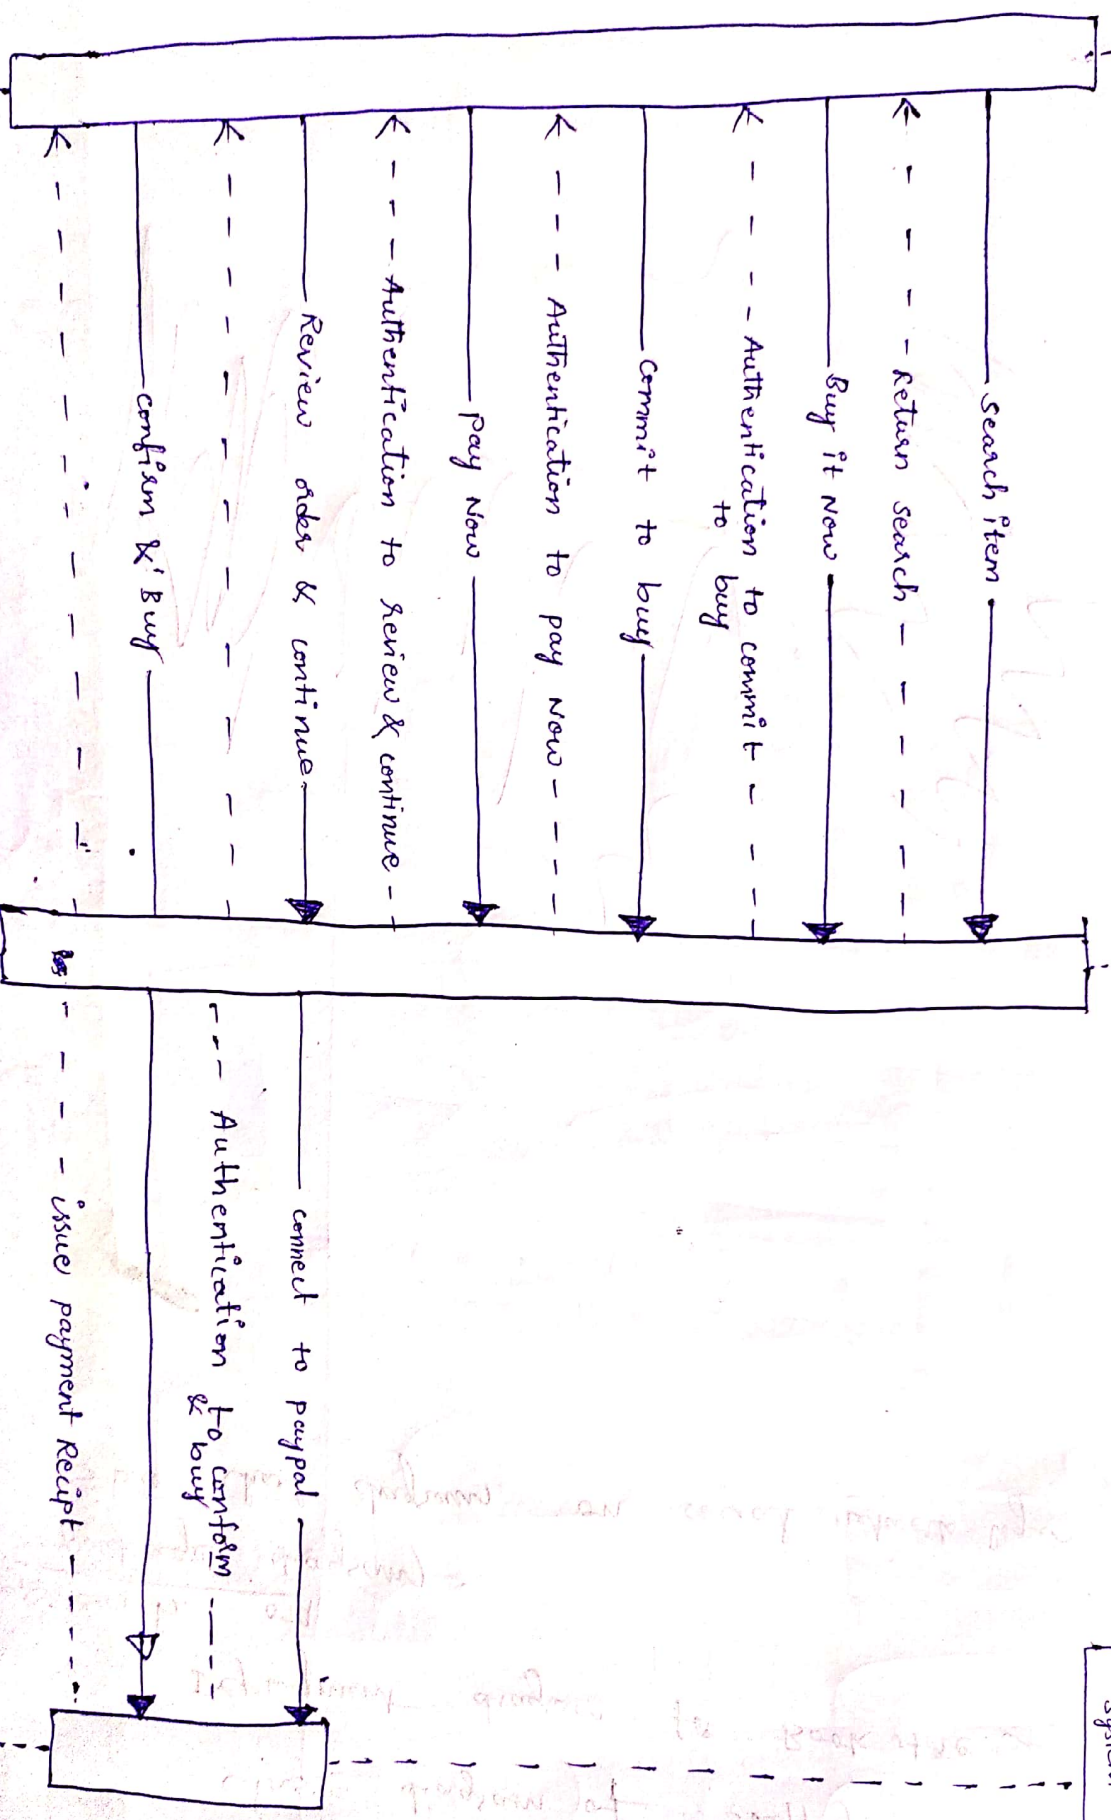 System
search item
Return search
Buy it Now
Authentication to commit
to buy
Commit to buy
Authentication to pay Now
pay Now
Authentication to review & continue
Review order & continue
connect to paypal
Authentication to conform
& buy
confirm & Buy
issue payment Recipt